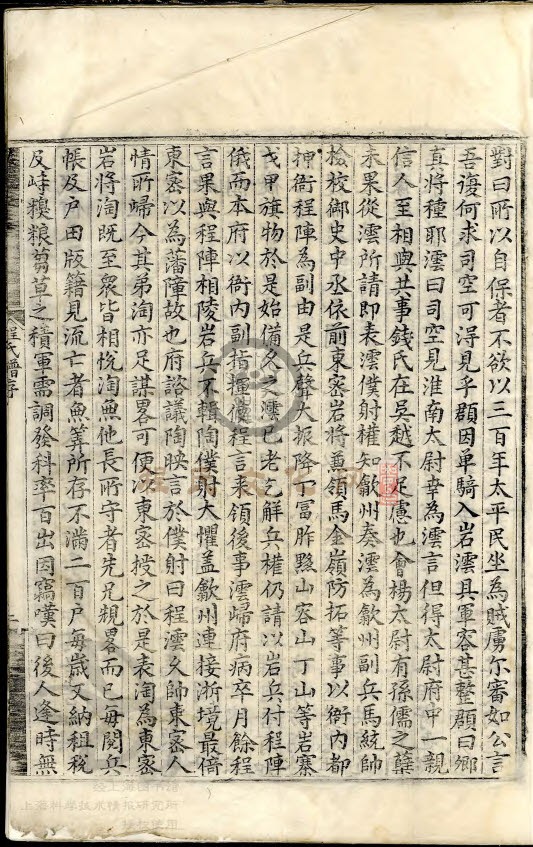 對曰所以自保者不欲以三百年太平民坐為賊虜尔審如公言
吾復何求司空可得見乎頵因單騎入岩澐具軍容甚整頵曰卿
真將種耶澐曰司空見淮南太尉幸為澐言但得太尉府中一親
信人至相與共事錢氏在吳越不足慮也會楊太尉有孫儒之孽
未果從澐所請即表澐僕射權知歙州奏澐為歙州副兵馬統帥
檢校御史中丞依前東密岩將兼領馬金嶺防拓等事以衙内都
押衙程陣為副由是兵聲大振降丁冨胙黟山容山丁山等岩寨
戈甲旗物於是始備久之澐已老乞解兵權仍請以岩兵付程陣
俄而本府以衙内副指揮使程言来領後事澐歸府病卒月餘程
言果與程陣相陵岩兵不輯陶僕射大懼盖歙州連接浙境最倚
東密以為藩障故也府諮議陶映言於僕射曰程澐久帥東密人
情所歸今其弟淘亦足謀畧可便以東密授之於是表淘為東密
岩將淘既至衆皆相恱淘無他長所守者先兄規畧而已每閱兵
帳及户田版籍見流亡者魚筭所存不滿二百户每歳又納租税
及峙糗粮芻草之積軍需調發科率百出因竊嘆曰後人逢時無
程氏譜序
經上海图书馆
上海科学技术情报研究所
授权使用